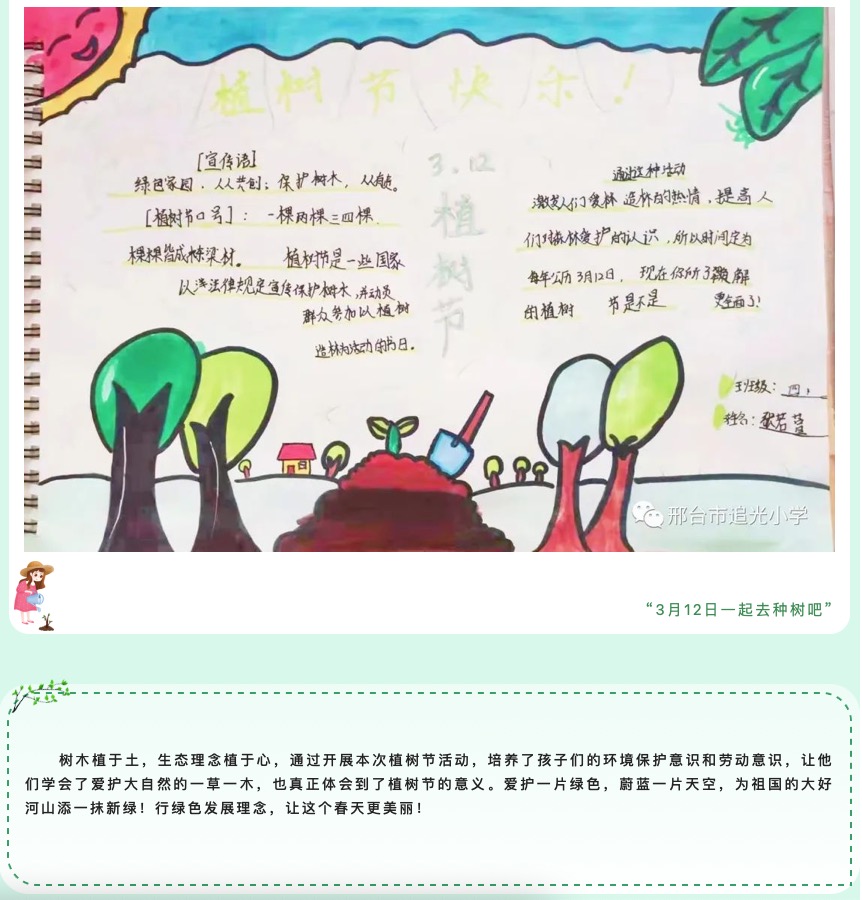 植树节快乐!
[宣传语]
绿色家园,人人共创;保护树木,从自己。
[植树节口号]:一棵两棵三四棵,
棵棵皆成栋梁材。 植树节是一些国家
以法律规定宣传保护树木,并动员
群众参加以植树
造林为活动的节日。
3.12
植树节
通过这种活动
激发人们爱林造林的热情,提高人
们对森林爱护的认识,所以时间定为
每年公历3月12日, 现在你所了解
的植树 节是不是 更全面了!
班级:四、
姓名:张若
邢台市追光小学
“3月12日一起去种树吧”
树木植于土,生态理念植于心,通过开展本次植树节活动,培养了孩子们的环境保护意识和劳动意识,让他
们学会了爱护大自然的一草一木,也真正体会到了植树节的意义。爱护一片绿色,蔚蓝一片天空,为祖国的大好
河山添一抹新绿!行绿色发展理念,让这个春天更美丽!